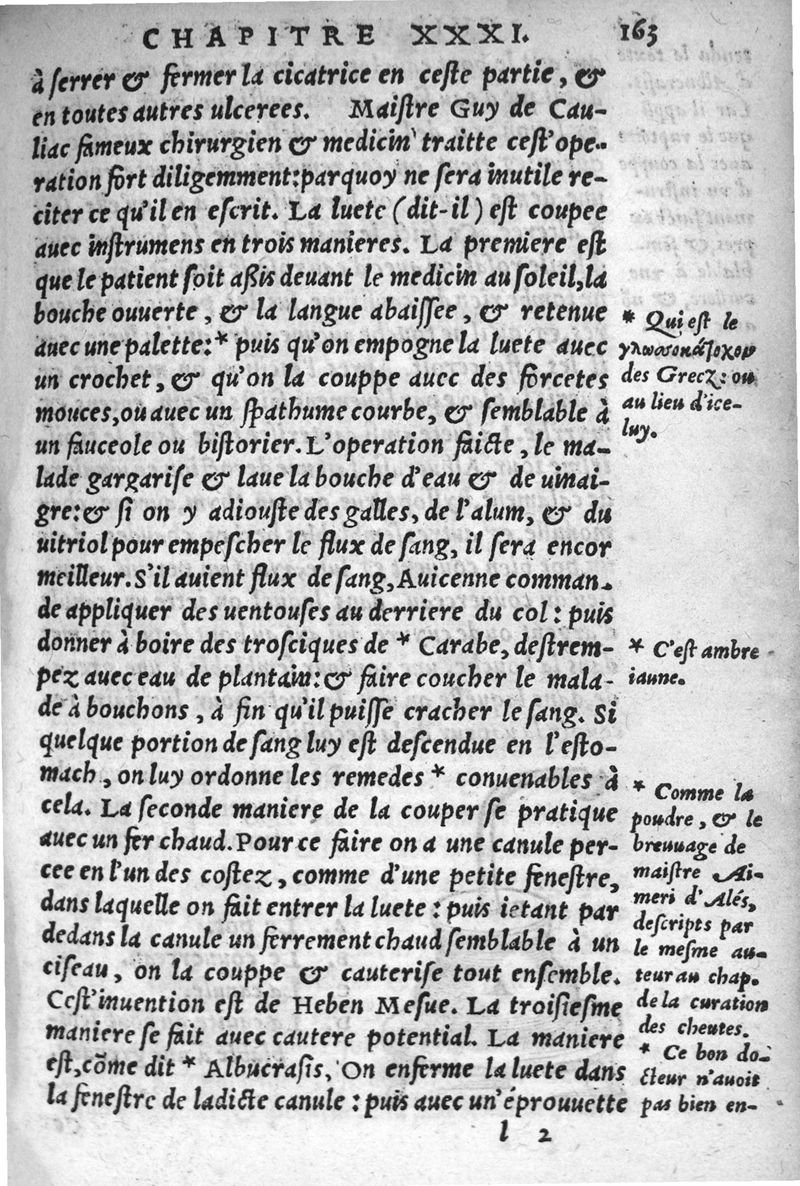 CHAPITRE XXXI. 163
à ſerrer & fermer la cicatrice en ceſte partie, &
en toutes autres ulcerees. Maiſtre Guy de Cau-
liac fameux chirurgien & medicin traitte ceſt'ope-
ration fort diligemment: parquoy ne sera inutile re-
citer ce qu'il en eſcrit. La luete (dit-il) eſt coupee
auec inſtrumens en trois manieres. La premiere eſt
que le patient ſoit aßis deuant le medicin au ſoleil, la
bouche ouuerte, & la langue abaiſſee, & retenue
auec une palette:* puis qu'on empogne la luete auec
un crochet, & qu'on la couppe auec des forcetes
mouces, ou auec un ſpathume courbe, & ſemblable à
un fauceole ou biſtorier. L'operation faicte, le ma-
lade gargariſe & laue la bouche d'eau & de uinai-
gre: & ſi on y adiouſte des galles, de l'alum, & du
uitriol pour empeſcher le flux de ſang, il ſera encor
meilleur. S'il auient flux de ſang, Auicenne comman-
de appliquer des uentouſes au derriere du col: puis
donner à boire des troſciques de * Carabe, deſtrem-
pez auec eau de plantain: & faire coucher le mala-
de à bouchons, à fin qu'il puiſſe cracher le ſang. Si
quelque portion de ſang luy eſt deſcendue en l'eſto-
mach, on luy ordonne les remedes * conuenables à
cela. La ſeconde maniere de la couper ſe pratique
auec un fer chaud. Pour ce faire on a une canule per-
cee en l'un des coſtez, comme d'une petite feneſtre,
dans laquelle on fait entrer la luete: puis ietant par
dedans la canule un ferrement chaud ſemblable à un
ciſeau, on la couppe & cauteriſe tout enſemble.
Ceſt'inuention eſt de Heben Meſue. La troiſieſme
maniere ſe fait auec cautere potential. La maniere
eſt, cõme dit * Albucraſis, On enferme la luete dans
la feneſtre de ladicte canule: puis auec un'éprouuette
l 2
* Qui eſt le
γλωσσοκάτοχον
des Grecz: ou
au lieu d'ice-
luy.
* C'eſt ambre
iaune.
* Comme la
poudre, & le
breuuage de
maiſtre Ai-
meri d'Alés,
deſcripts par
le meſme au-
teur au chap.
de la curation
des cheutes.
* Ce bon do-
cteur n'auoit
pas bien en-